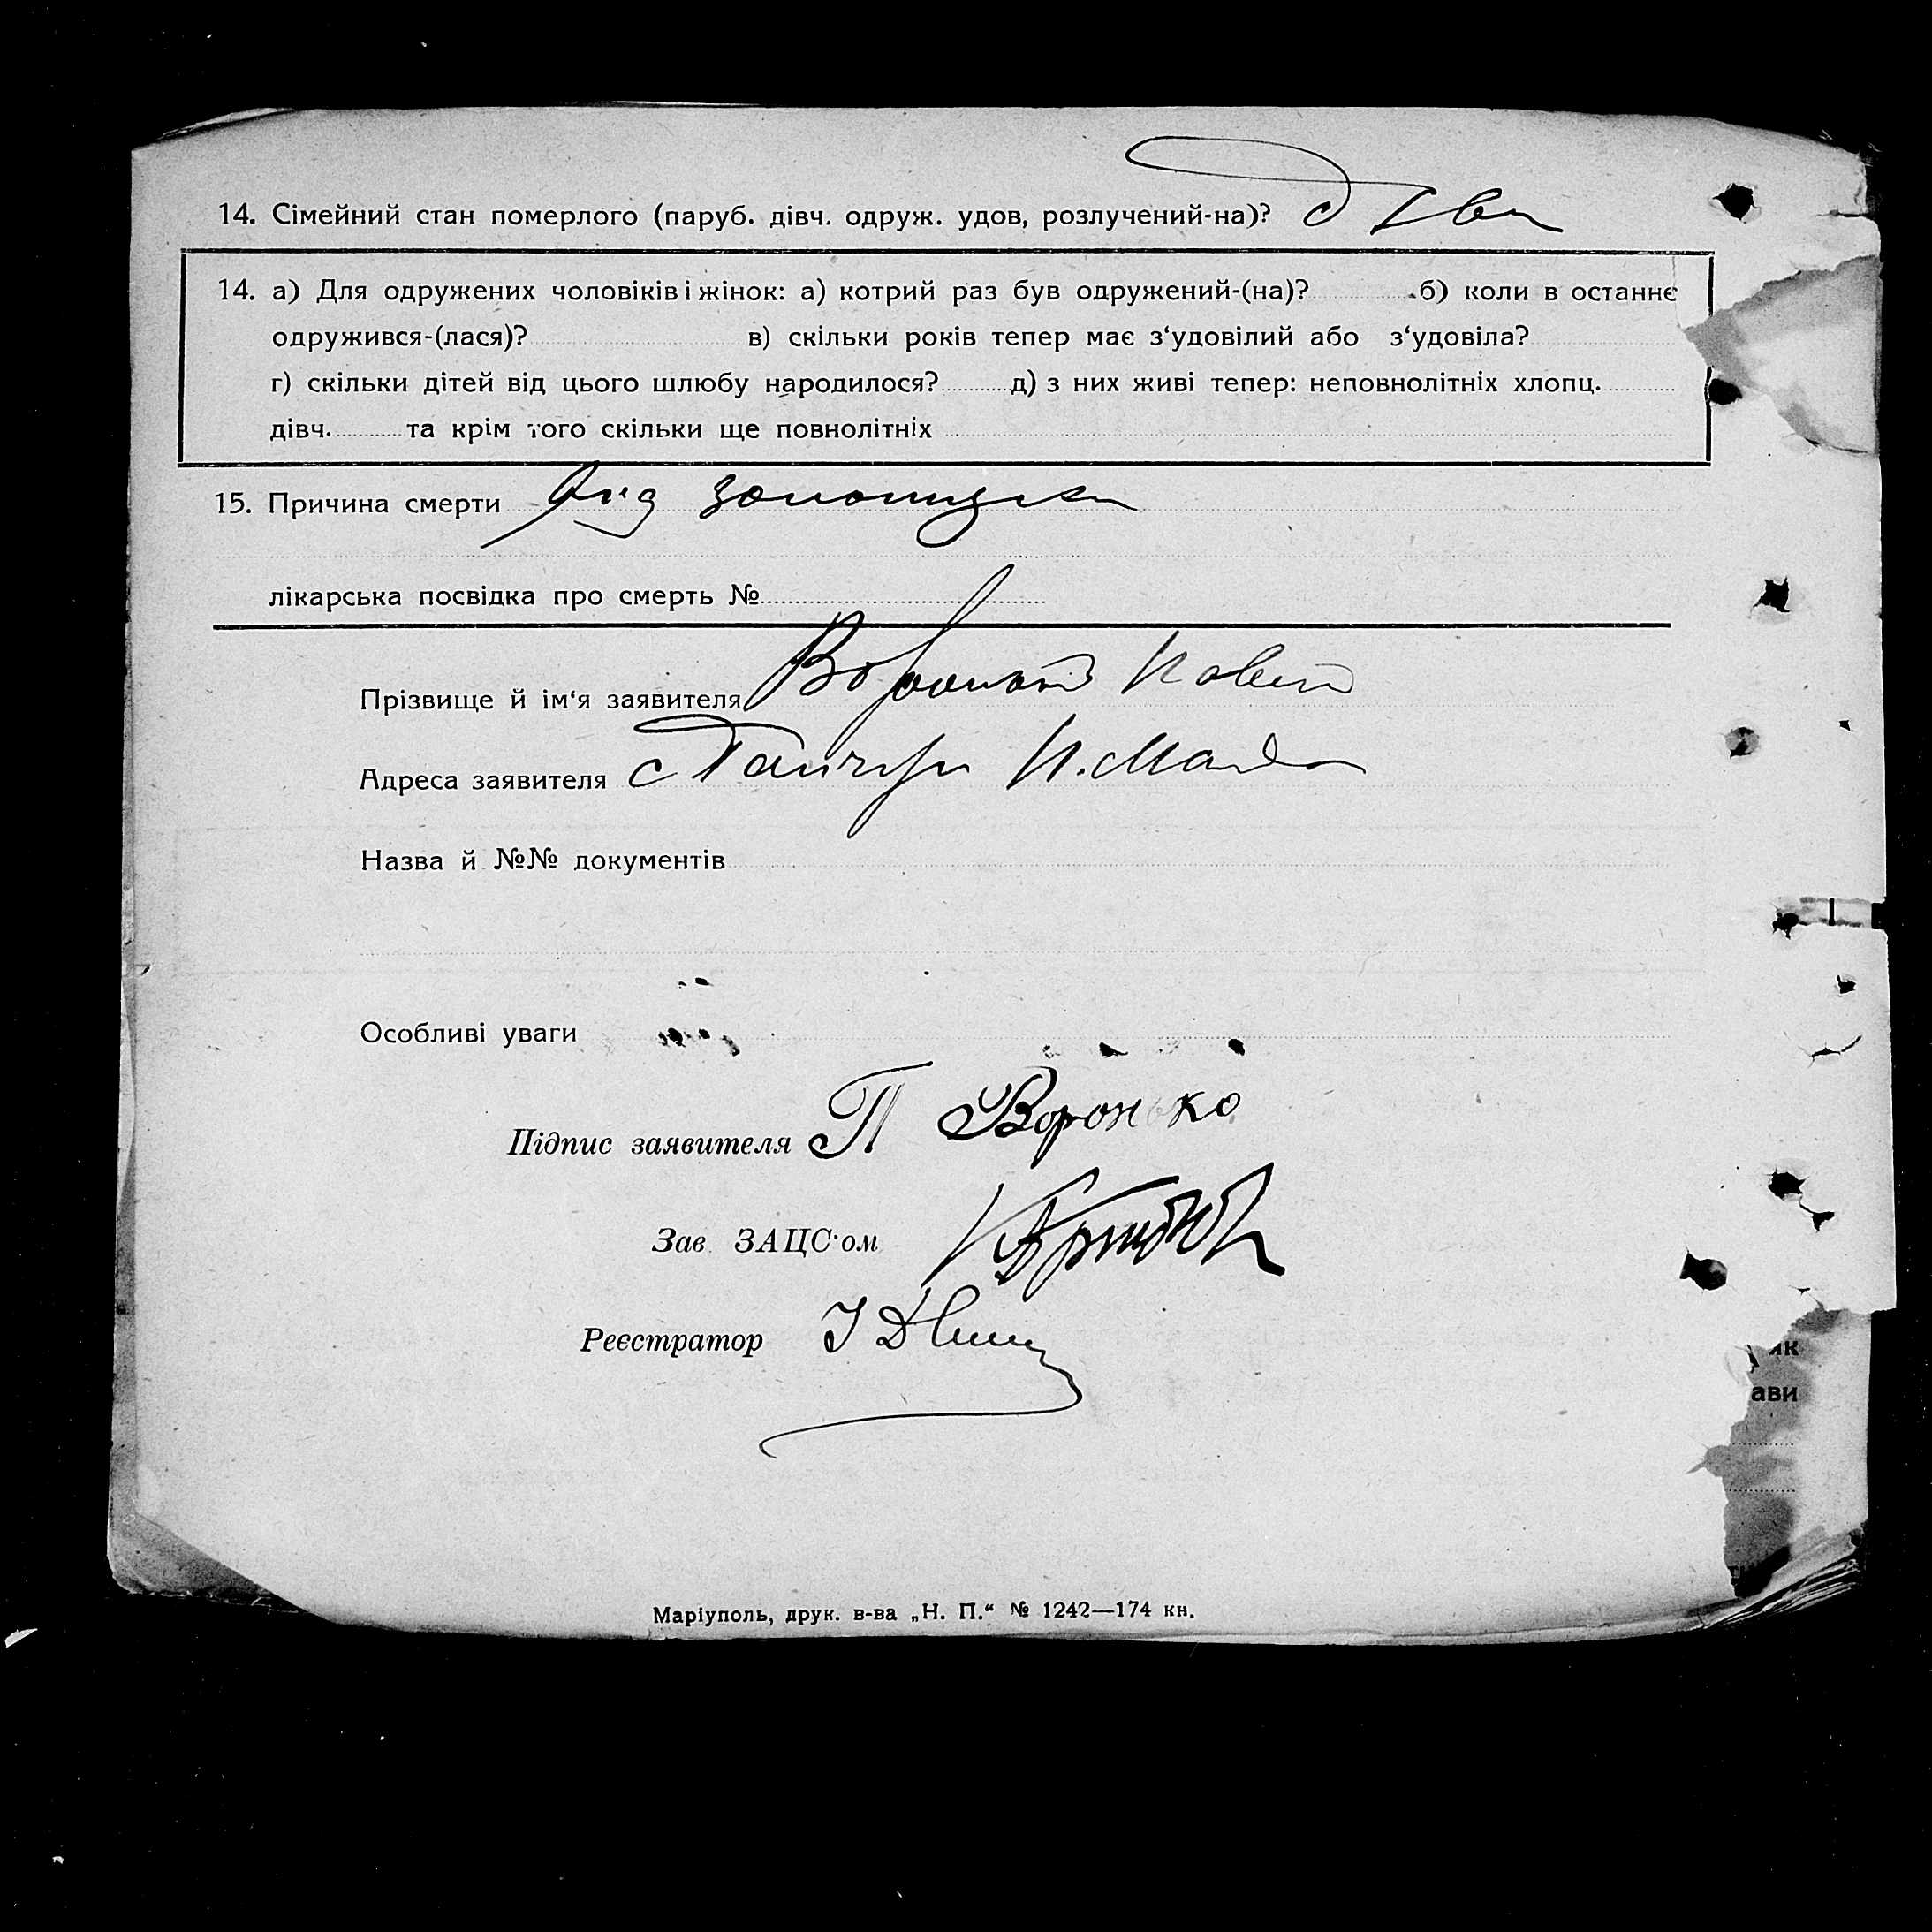 14. Сімейний стан померлого (паруб. дівч. одруж. удов, розлучений-на)? Дівч
14. а) Для одружених чоловіків і жінок: а) котрий раз був одружений-(на)? б) коли в останнє
одружився-(лася)? в) скільки років тепер має з‘удовілий або з‘удовіла?
г) скільки дітей від цього шлюбу народилося? д) з них живі тепер: неповнолітніх хлопц.
дівч. та крім того скільки ще повнолітніх
15. Причина смерти Від
лікарська посвідка про смерть №
Прізвище й ім‘я заявителя
Адреса заявителя
Назва й №№ документів
Особливі уваги
Підпис заявителя П Воронько
Зав. ЗАЦС‘ом
Реєстратор
як
ави
Маріуполь, друк. в-ва „Н. П.“ № 1242—174 кн.